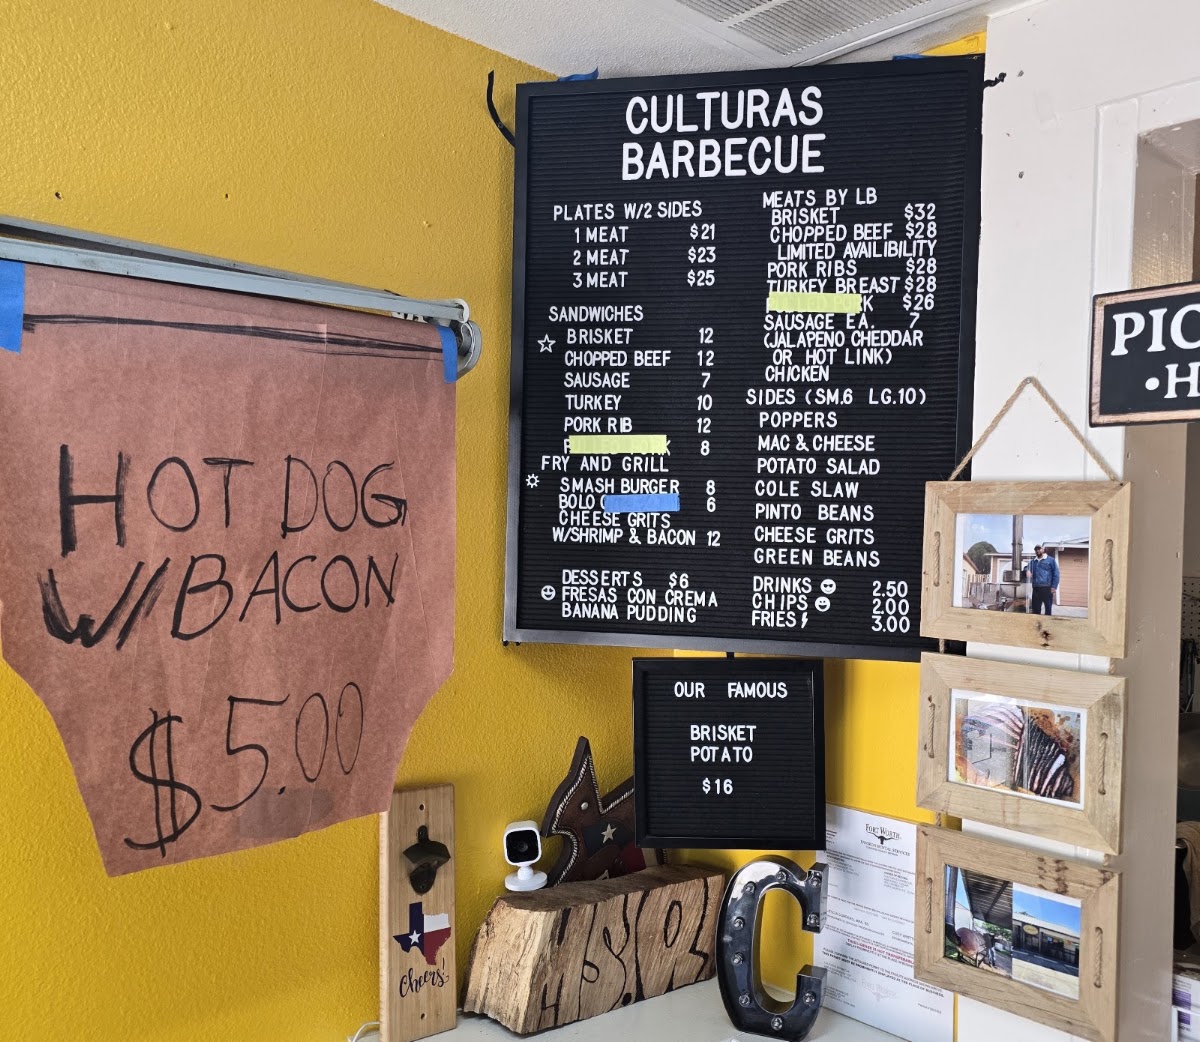 HOT DOG
W/BACON
$5.00
CULTURAS
BARBECUE
PLATES W/2 SIDES
1 MEAT $21
2 MEAT $23
3 MEAT $25
SANDWICHES
BRISKET 12
CHOPPED BEEF 12
SAUSAGE 7
TURKEY 10
PORK RIB 12
8
FRY AND GRILL
SMASH BURGER 8
BOLO 6
CHEESE GRITS
W/SHRIMP & BACON 12
DESSERTS $6
FRESAS CON CREMA
BANANA PUDDING
MEATS BY LB
BRISKET $32
CHOPPED BEEF $28
LIMITED AVAILIBILITY
PORK RIBS $28
TURKEY BREAST $28
$26
SAUSAGE EA. 7
(JALAPENO CHEDDAR
OR HOT LINK)
CHICKEN
SIDES (SM.6 LG.10)
POPPERS
MAC & CHEESE
POTATO SALAD
COLE SLAW
PINTO BEANS
CHEESE GRITS
GREEN BEANS
DRINKS 2.50
CHIPS 2.00
FRIES 3.00
OUR FAMOUS
BRISKET
POTATO
$16
PIC
•H
Cheers!
C
FORT WORTH